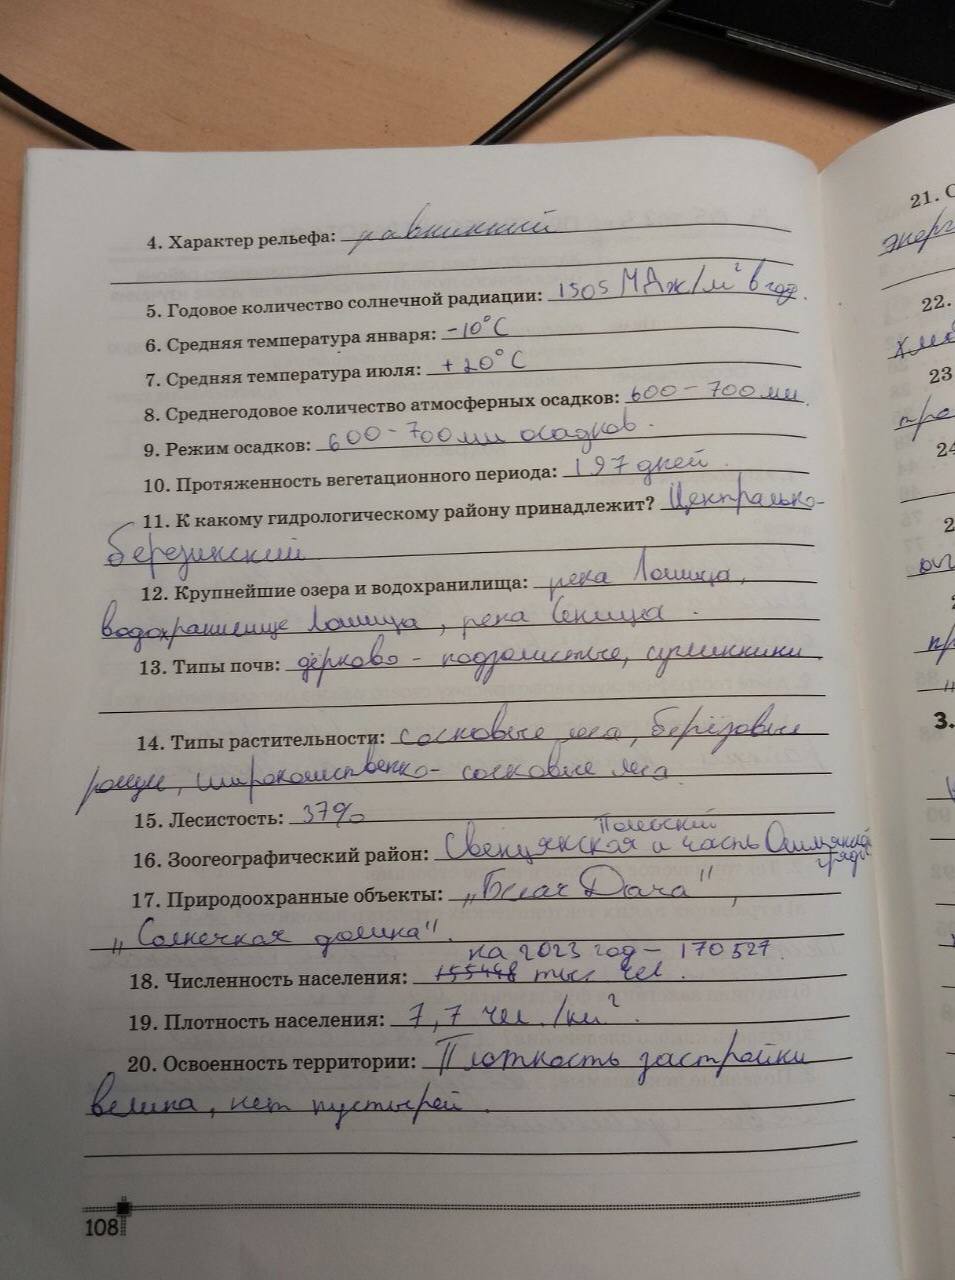 4. Характер рельефа: равнинный
5. Годовое количество солнечной радиации: 1505 МДж/м² в год.
6. Средняя температура января: -10°C
7. Средняя температура июля: +20°C
8. Среднегодовое количество атмосферных осадков: 600-700 мм.
9. Режим осадков: 600-700 мм осадков.
10. Протяженность вегетационного периода: 197 дней.
11. К какому гидрологическому району принадлежит? Центрально-
березинский
12. Крупнейшие озера и водохранилища: река Лошица,
водохранилище Лошица, река Сеница.
13. Типы почв: дерново-подзолистые, суглинники
14. Типы растительности: сосновые леса, берёзовые
рощи, широколиственно-сосновые леса
15. Лесистость: 37%
Полесский
16. Зоогеографический район: Свенцянская и часть Ошмянской
гряды
17. Природоохранные объекты: „Белая Дача",
„Солнечная долина".
на 2023 год - 170 527.
18. Численность населения: тыс чел.
19. Плотность населения: 7,7 чел./км².
20. Освоенность территории: Плотность застройки
велика, нет пустырей.
108
21. С
энерг
22.
хлеб
23
пра
24
2
3.